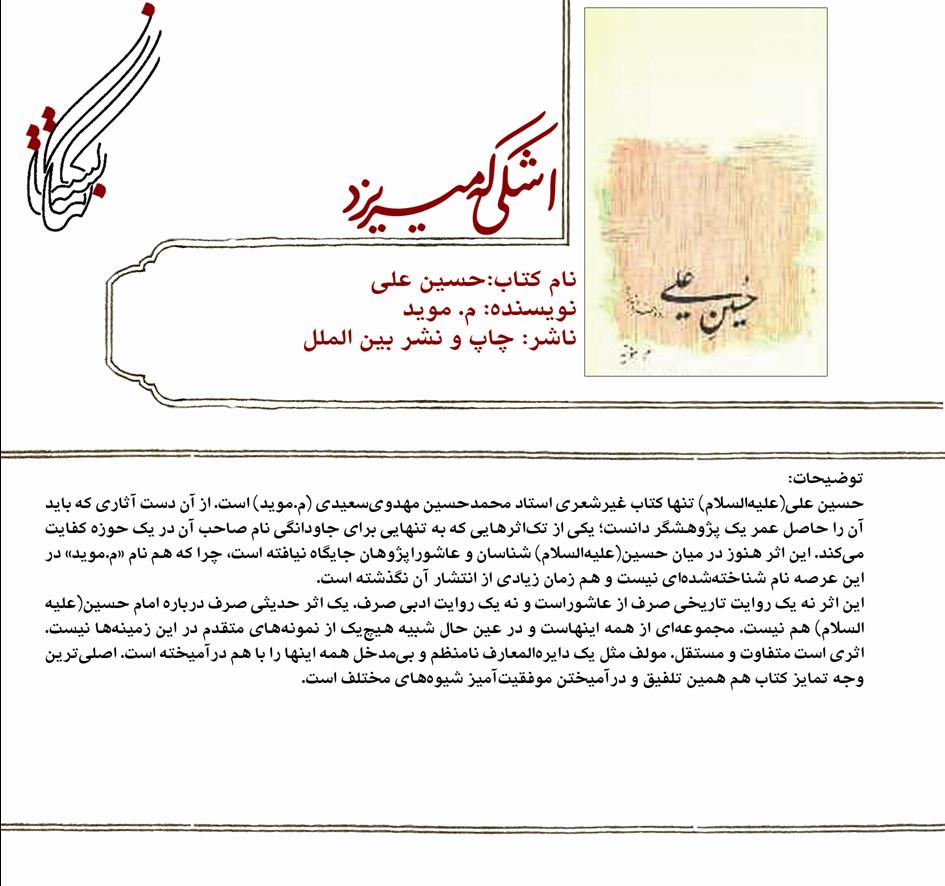 اشکی که میریزد
حسین علی
م. موید
نام کتاب:حسین علی
نویسنده: م. موید
ناشر: چاپ و نشر بین الملل
توضیحات:
حسین علی(علیه‌السلام) تنها کتاب غیرشعری استاد محمدحسین مهدوی‌سعیدی (م.موید) است. از آن دست آثاری که باید
آن را حاصل عمر یک پژوهشگر دانست؛ یکی از تک‌اثرهایی که به تنهایی برای جاودانگی نام صاحب آن در یک حوزه کفایت
می‌کند. این اثر هنوز در میان حسین(علیه‌السلام) شناسان و عاشوراپژوهان جایگاه نیافته است، چرا که هم نام «م.موید» در
این عرصه نام شناخته‌شده‌ای نیست و هم زمان زیادی از انتشار آن نگذشته است.
این اثر نه یک روایت تاریخی صرف از عاشوراست و نه یک روایت ادبی صرف. یک اثر حدیثی صرف درباره امام حسین(علیه
السلام) هم نیست. مجموعه‌ای از همه اینهاست و در عین حال شبیه هیچ‌یک از نمونه‌های متقدم در این زمینه‌ها نیست.
اثری است متفاوت و مستقل. مولف مثل یک دایره‌المعارف نامنظم و بی‌مدخل همه اینها را با هم درآمیخته است. اصلی‌ترین
وجه تمایز کتاب هم همین تلفیق و درآمیختن موفقیت‌آمیز شیوه‌های مختلف است.